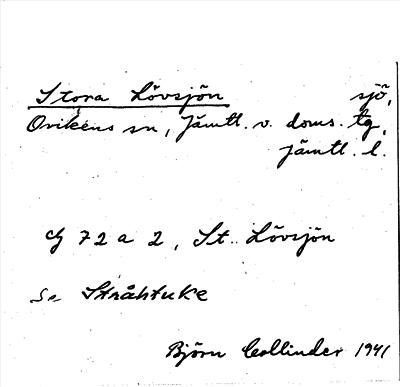 Stora Lövsjön sjö,
Ovikens sn, Jämtl. v. doms. tg,
Jämtl. l.
cf 72 a 2, St. Lövsjön
Se Stråhtuke
Björn Collinder 1941